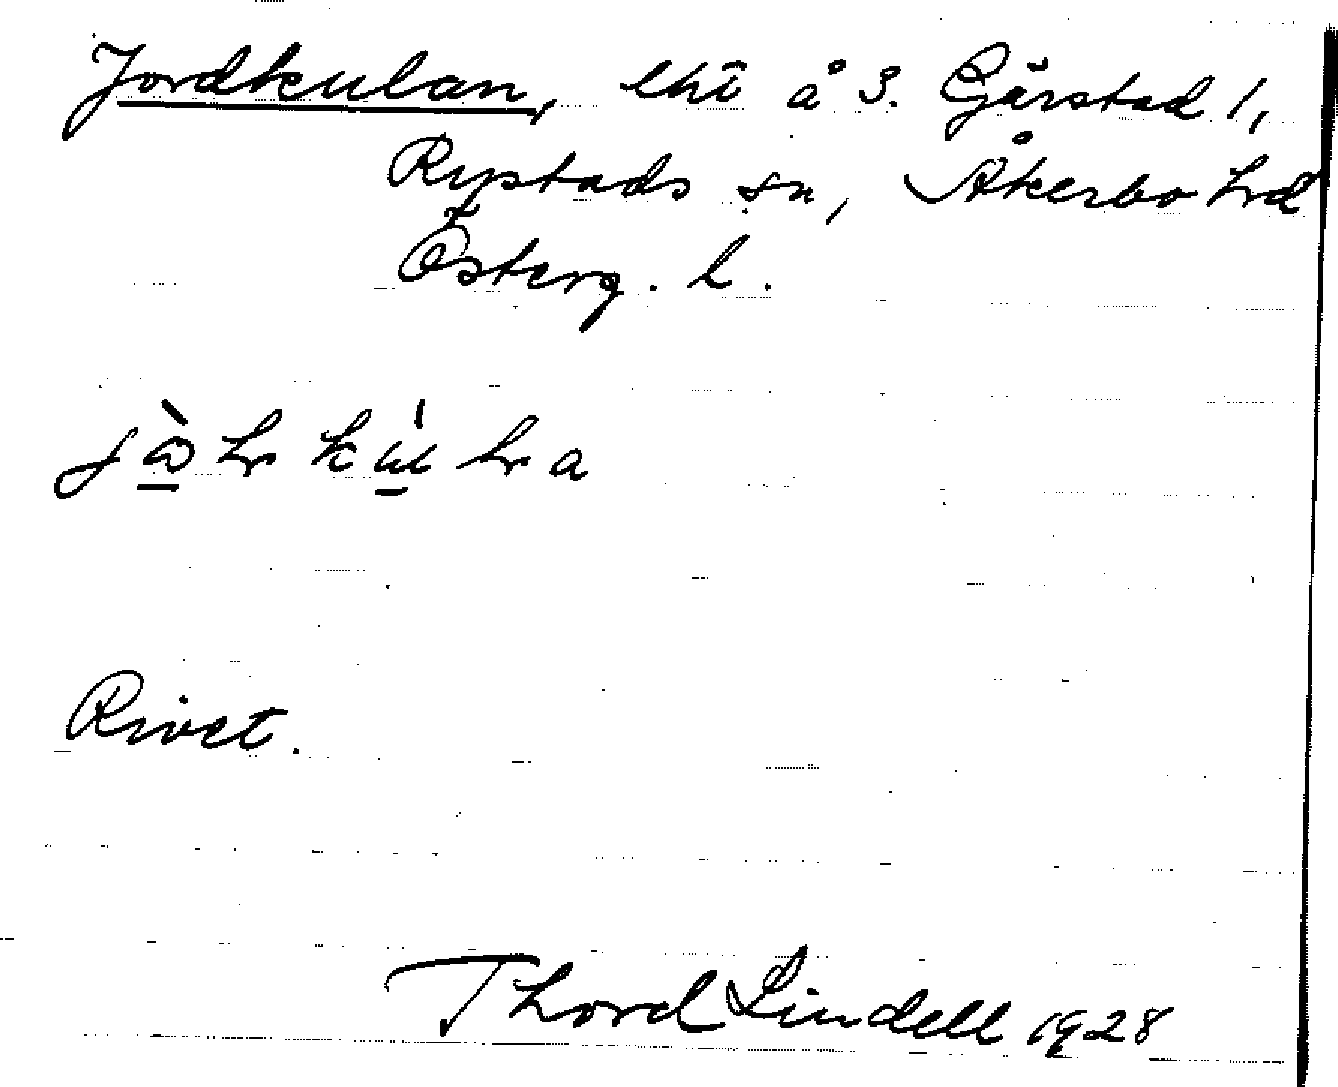 Jordkulan, lht å S. Gärstad 1,
Rystads sn, Åkerbo hd
Österg. l.
Rivet.
Thord Lindell 1928